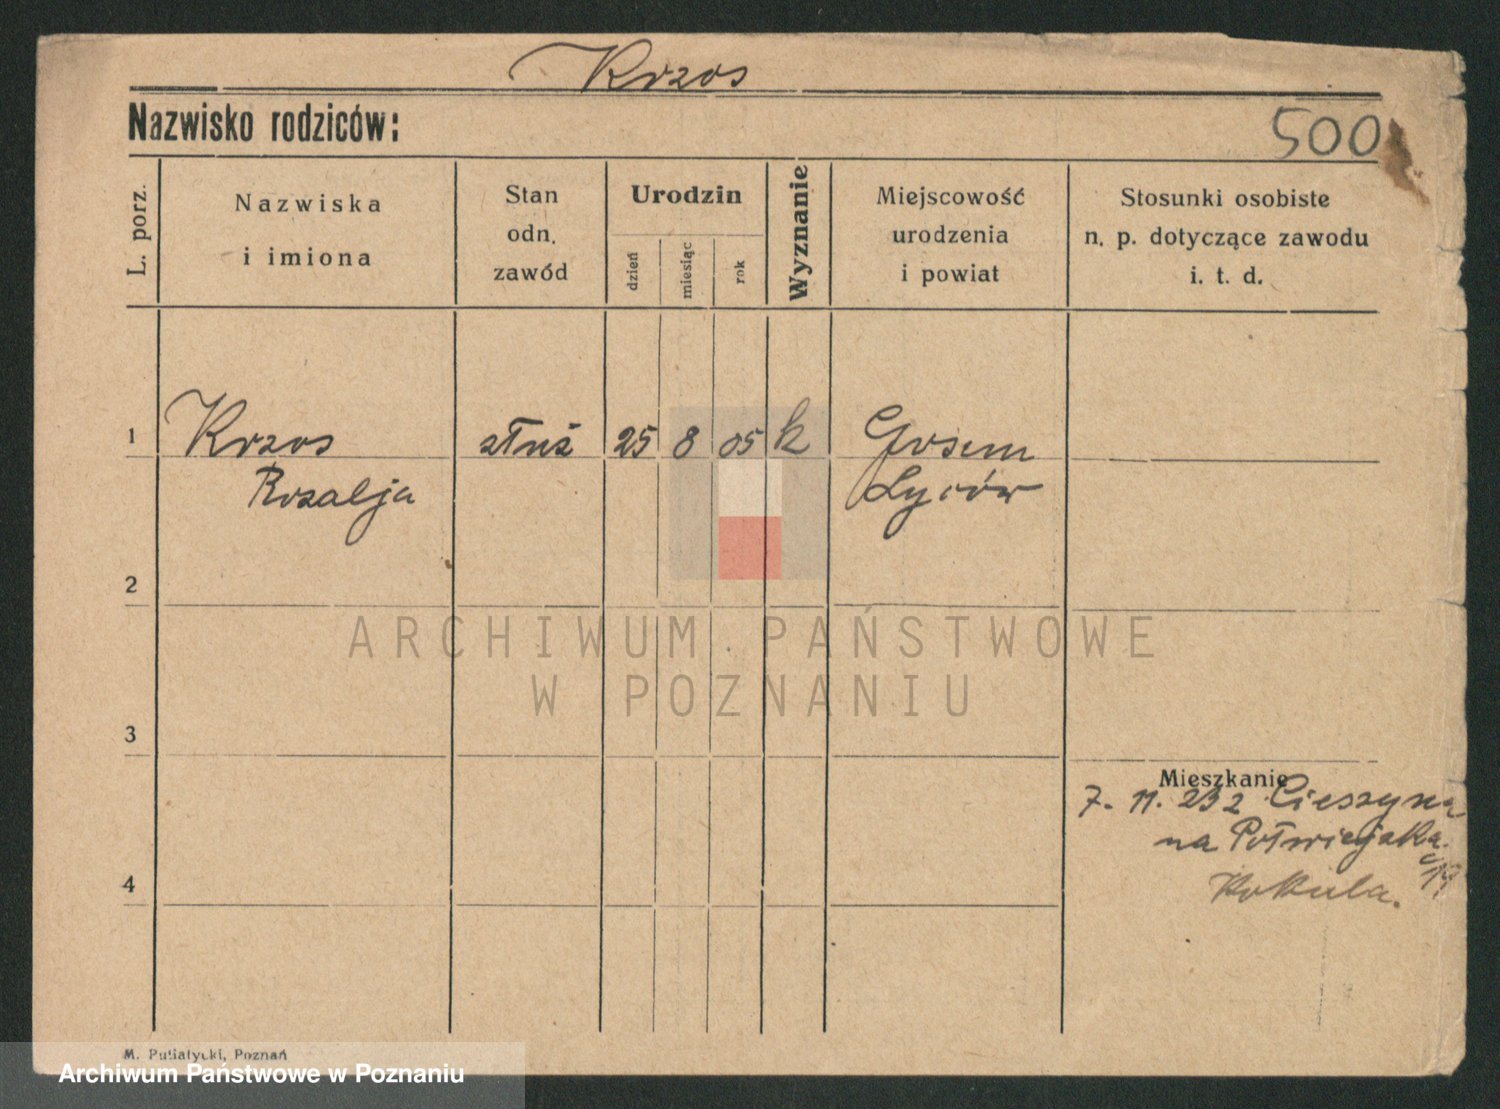 Krzos
Nazwisko rodziców:
500
L. porz.
Nazwiska
i imiona
Stan
odn.
zawód
Urodzin
dzień
miesiąc
rok
Wyznanie
Miejscowość
urodzenia
i powiat
Stosunki osobiste
n. p. dotyczące zawodu
i. t. d.
1
Krzos służ 25 8 05 k
Rozalja
2
ARCHIWUM PAŃSTWOWE
W POZNANIU
3
Mieszkanie
7. 11. 232
na Półwiejska
19
4
M. Putiatycki, Poznań
Archiwum Państwowe w Poznaniu